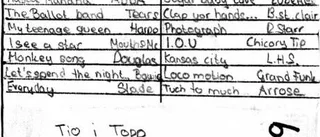 The Ballot band Tears Clap your hands... B.st.clair
My teenage queen Harpo Photograph R Starr
I see a star Mouth&Mc I.O.U Chicory Tip
Monkey song Douglas Kansas city L.H.S.
Let's spend the night.. Bowie Loco motion Grand Funk
Everyday Slade Tuch to much Arrose
Tio i Topp
9